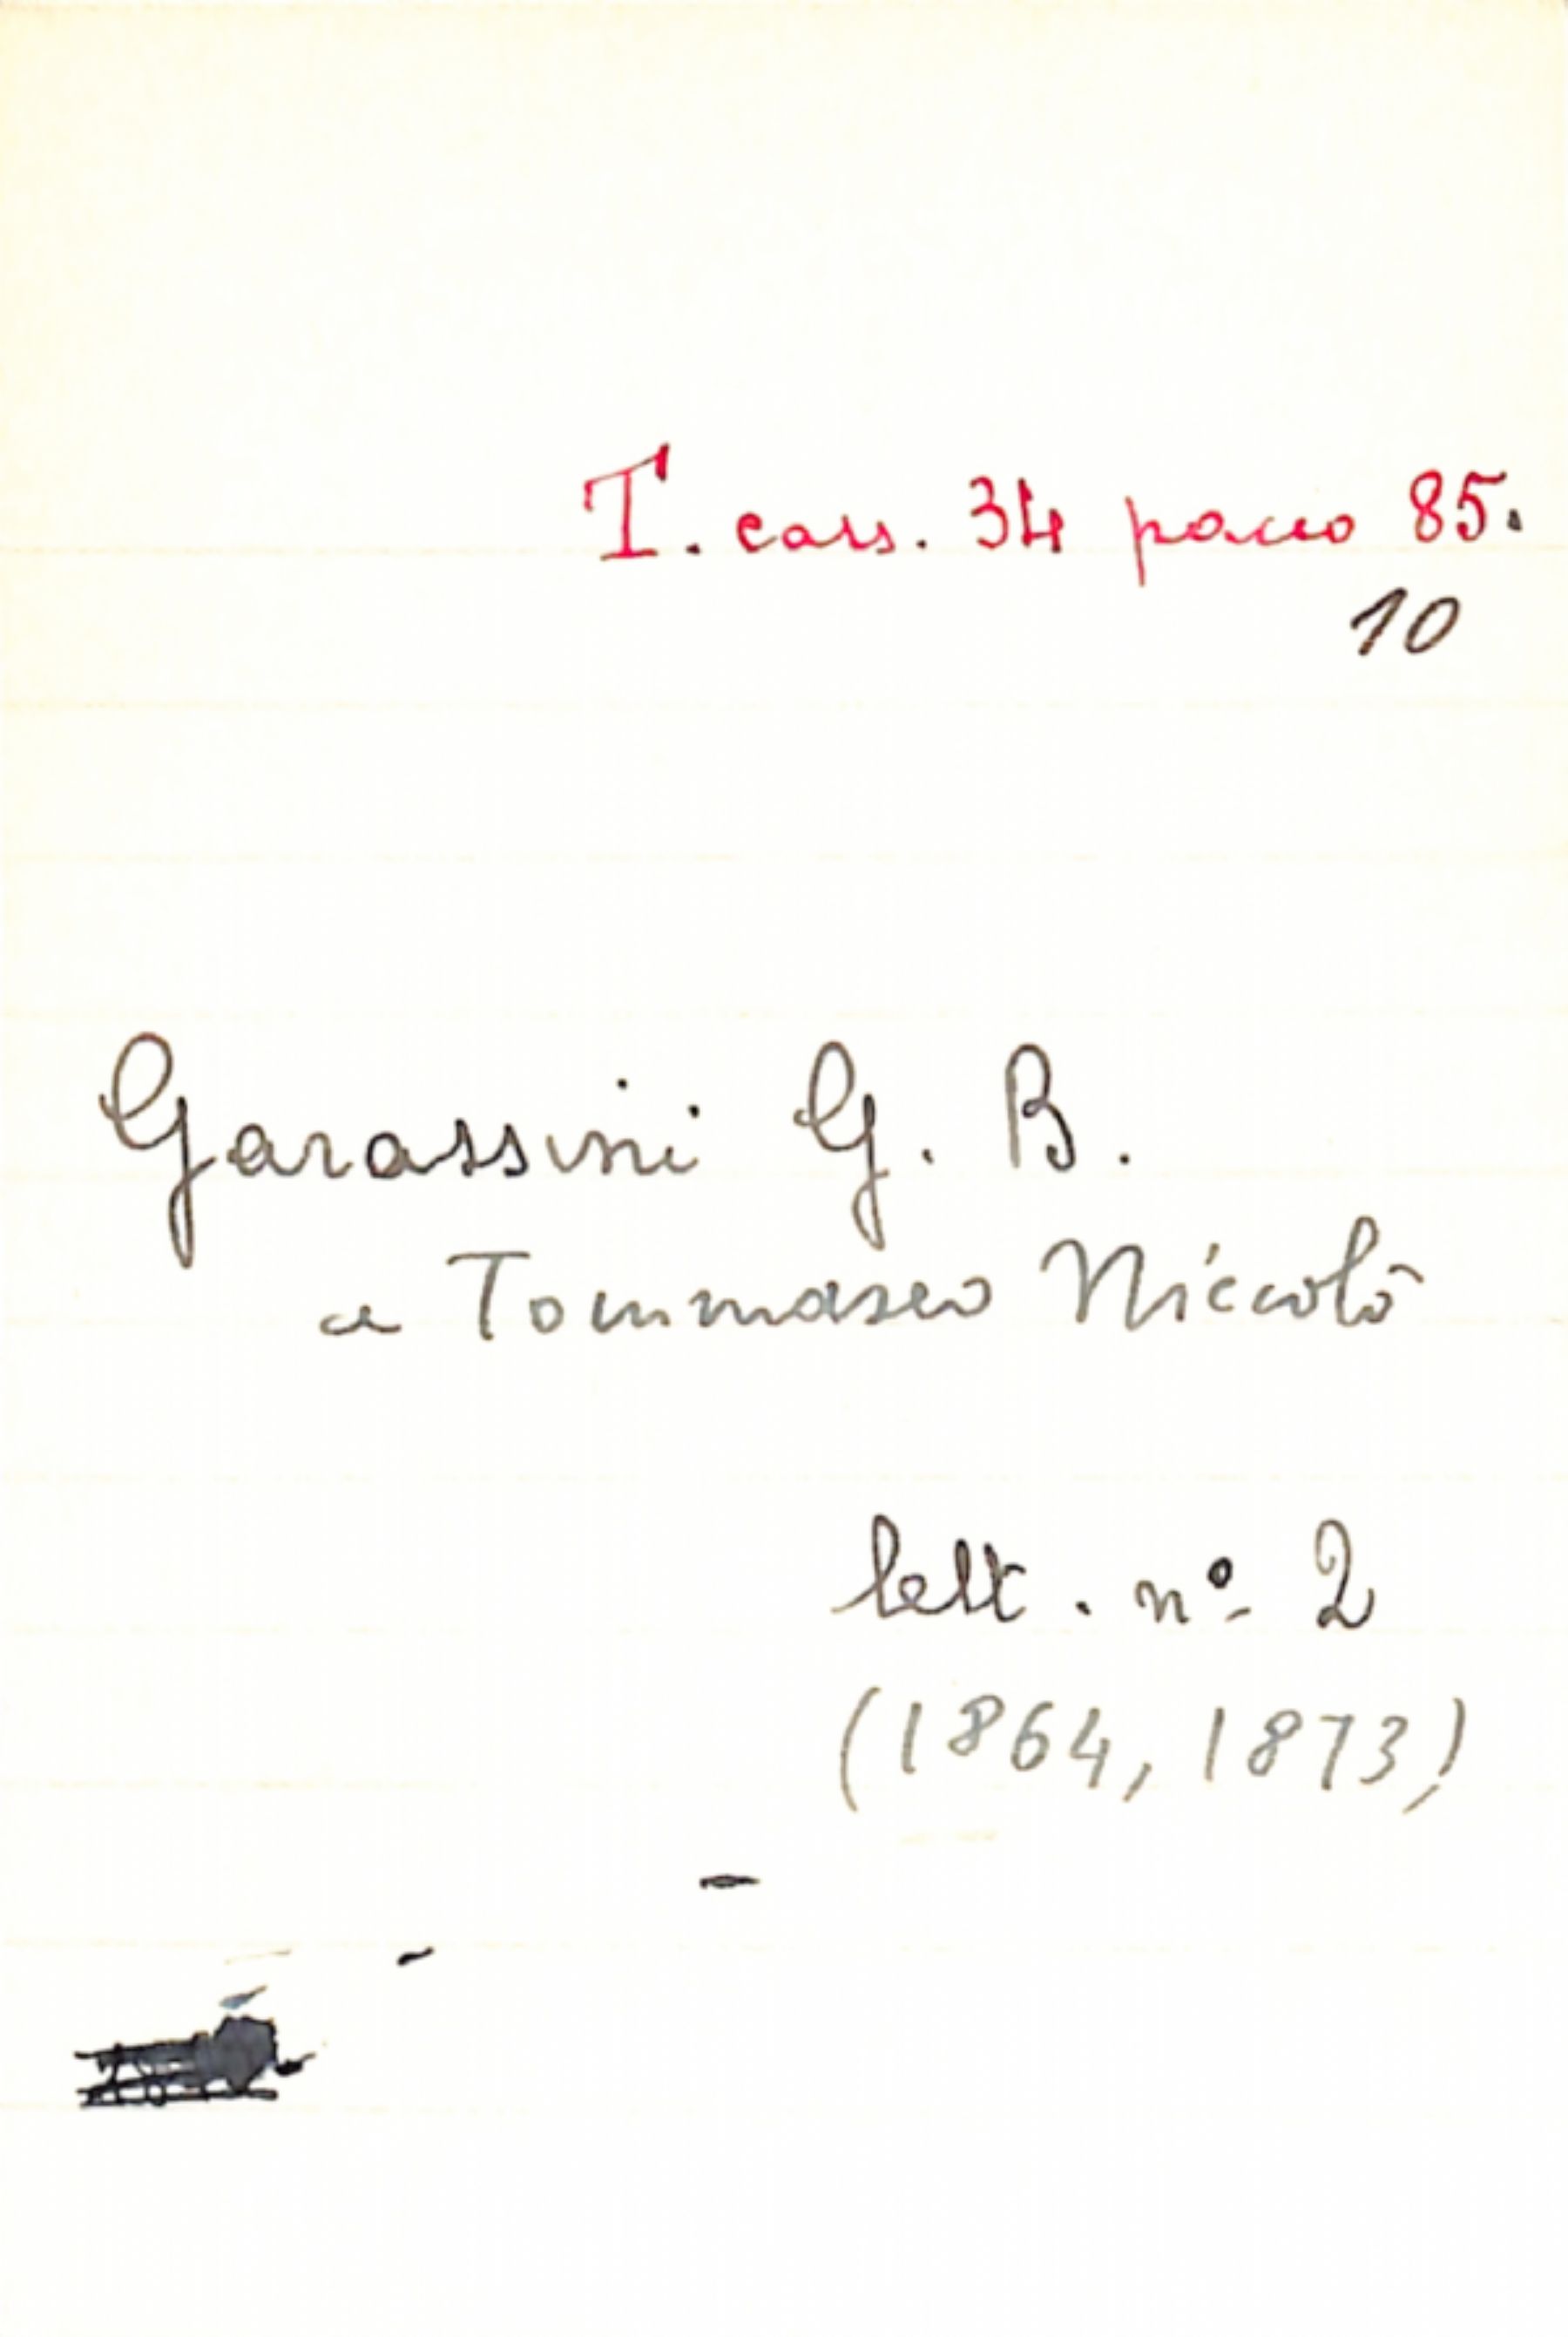 T. cass. 34 pacco 85.
10
Garassini G. B.
a Tommaseo Niccolò
lett. nº 2
(1864, 1873)